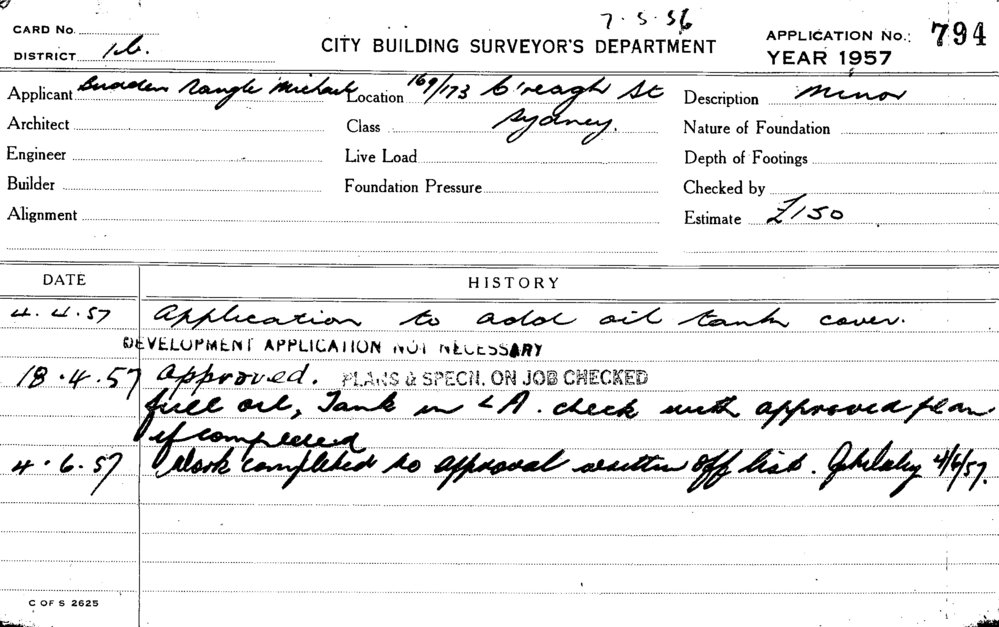 7.5.56
CARD No.
DISTRICT 1b.
CITY BUILDING SURVEYOR'S DEPARTMENT
APPLICATION No.: 794
YEAR 1957
Applicant Budden Nangle Michael Location 169/173 C'reagh St Description Minor
Architect Class Sydney. Nature of Foundation
Engineer Live Load Depth of Footings
Builder Foundation Pressure Checked by
Alignment Estimate £150
DATE HISTORY
4.4.57 Application to add oil tank cover.
DEVELOPMENT APPLICATION NOT NECESSARY
18.4.57 Approved. PLANS & SPECN. ON JOB CHECKED
fuel oil, Tank in LA. check with approved plan
if completed
4.6.57 Work completed to approval written off list. 4/6/57.
C OF S 2625